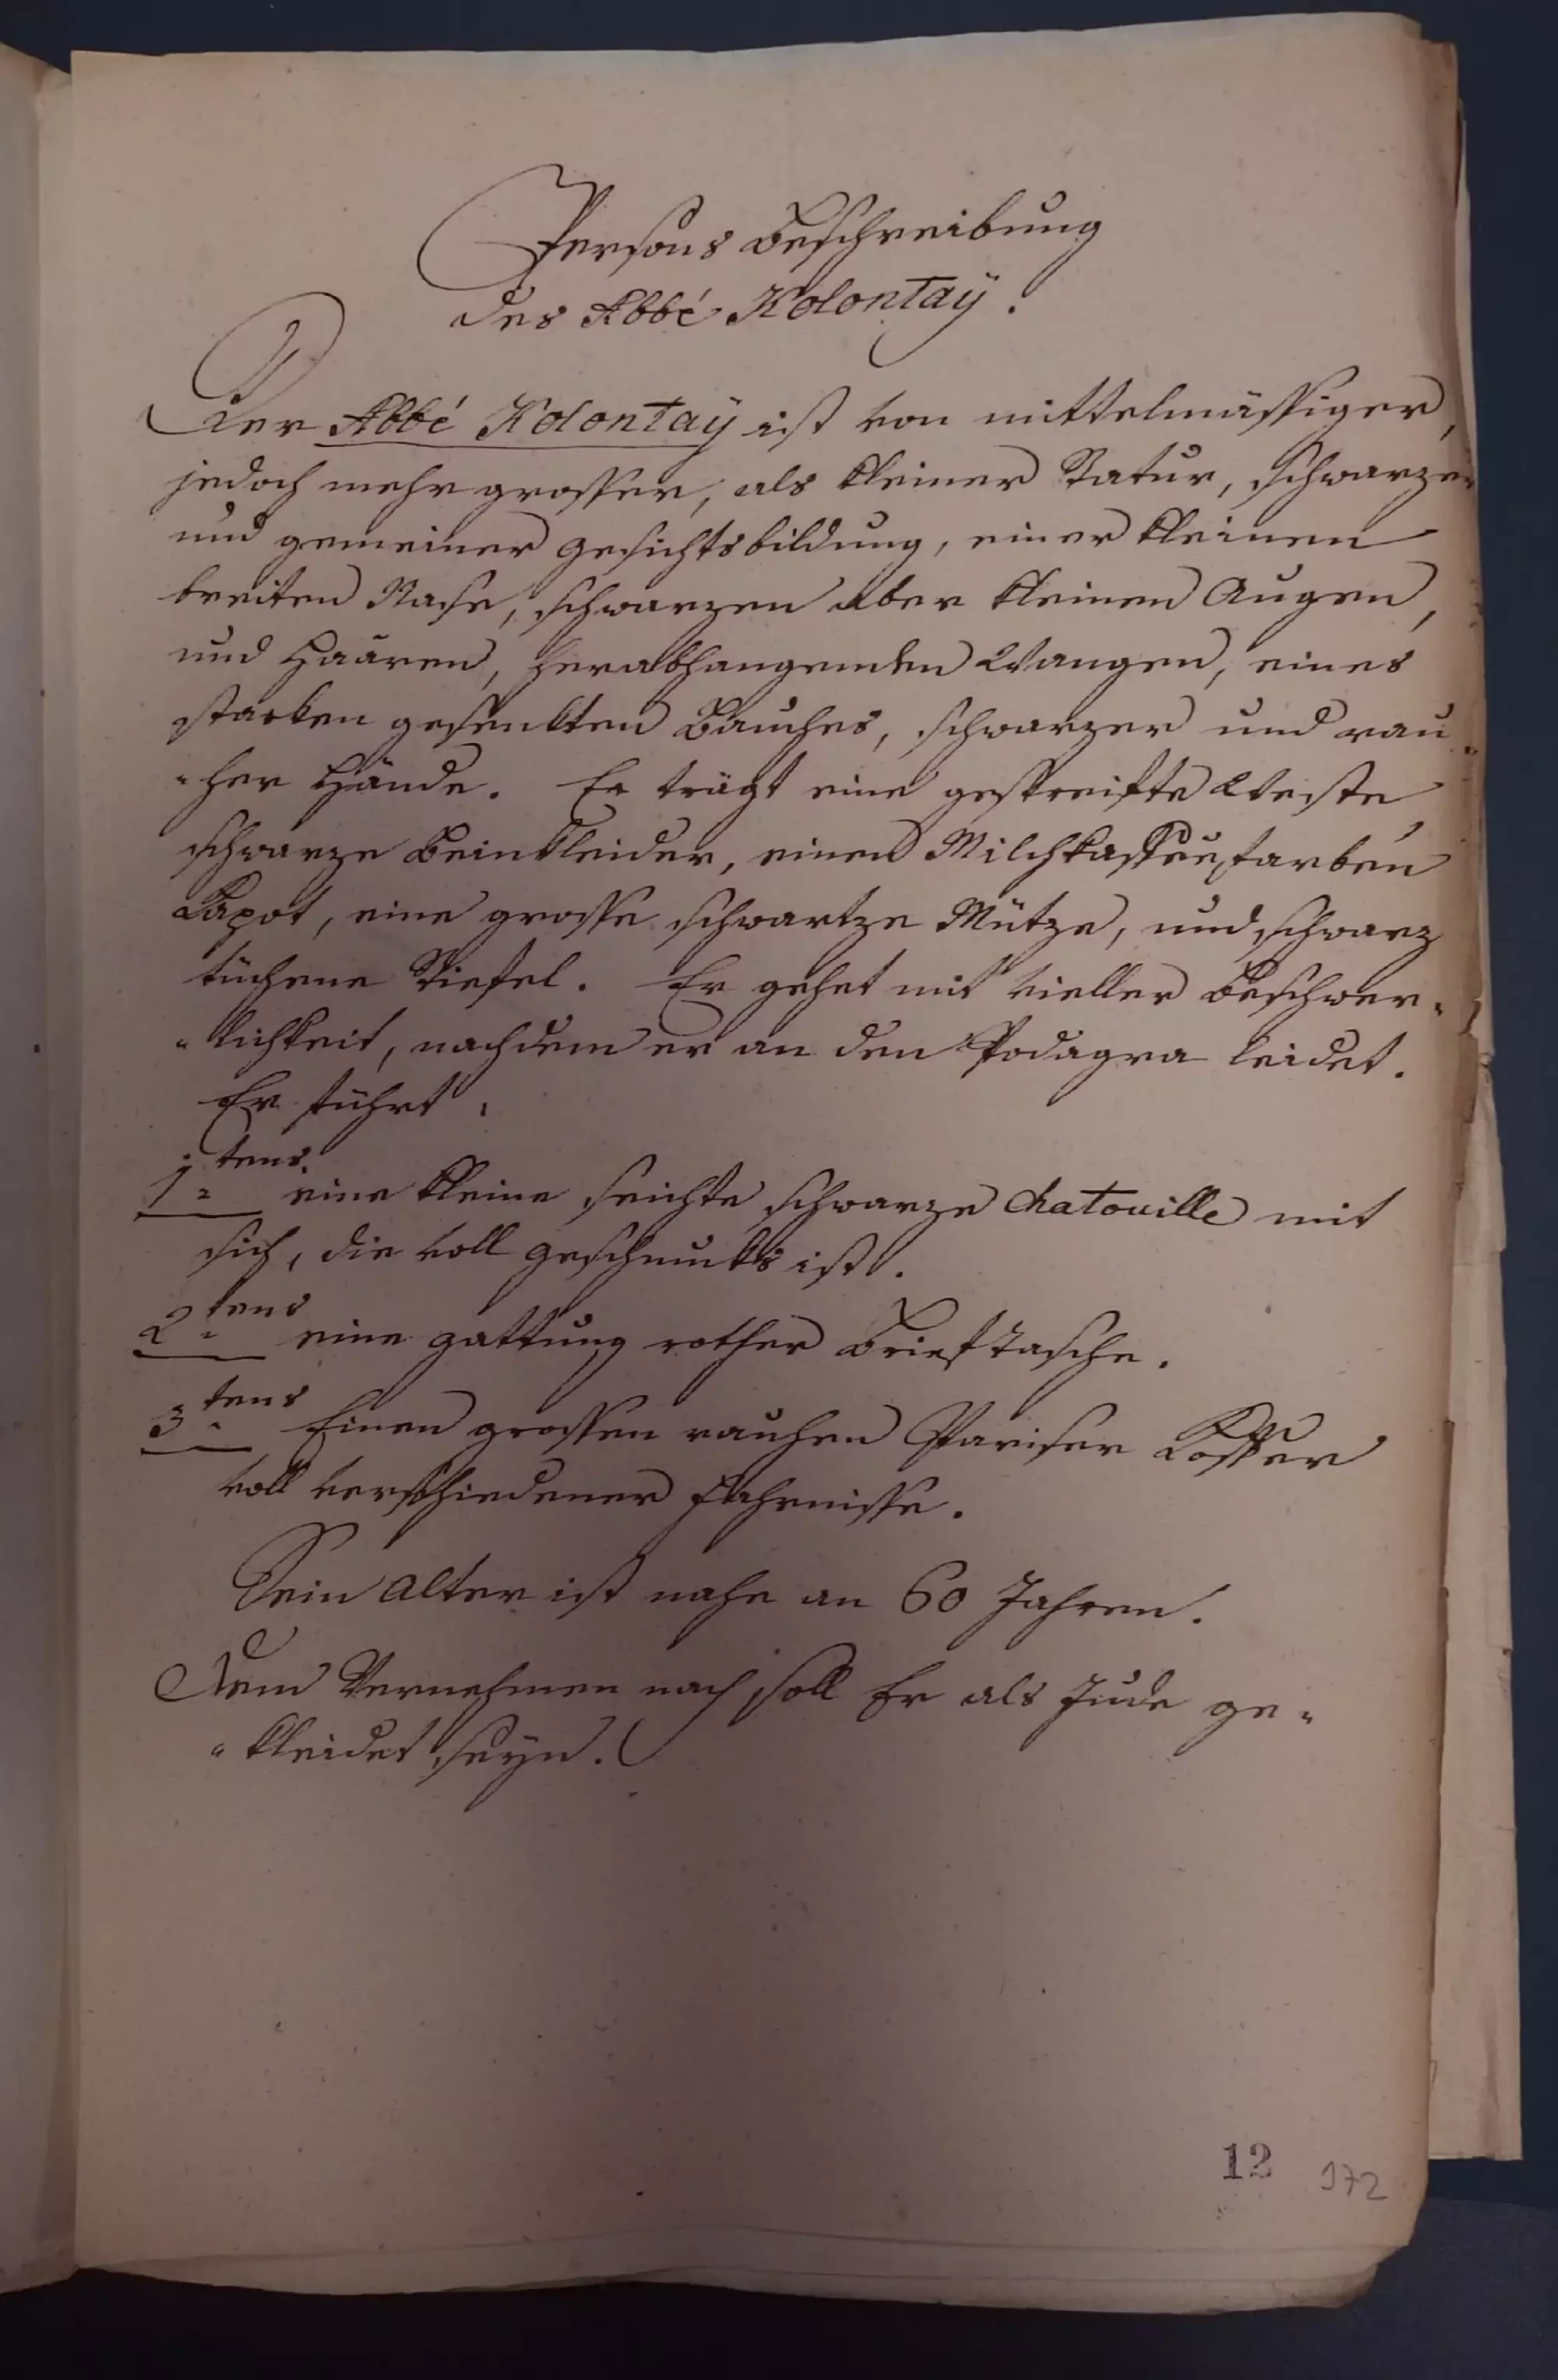 Persons Beschreibung
des Abbé Kolontaÿ.
Der Abbé Kolontaÿ ist von mittelmässiger,
jedoch mehr grosser, als kleiner Statur, schwarzer
und gemeiner Gesichtsbildung, einer kleinen
breiten Nase, schwarzen aber kleinen Augen,
und Haaren, herabhangenden Wangen, eines
starken gesenkten Bauches, schwarzer und rau-
-her Hände. Er trägt eine gestreifte Weste,
schwarze Beinkleider, einen Milchkaffeefarben
Kapot, eine grosse schwartze Mütze, und schwarz
tüchene Stiefel. Er gehet mit vieller Beschwer-
-lichkeit, nachdem er an den Podagra leidet.
Er führt:
1tens. eine kleine seichte schwarze Chatouille mit
sich, die voll Geschmucks ist.
2tens eine Gattung rother Brieftasche.
3tens Einen grossen rauhen Pariser Koffer
voll verschiedener Fahrnisse.
Sein Alter ist nahe an 60 Jahren.
Dem Vernehmen nach soll Er als Jude ge-
-kleidet seyn.
12 172